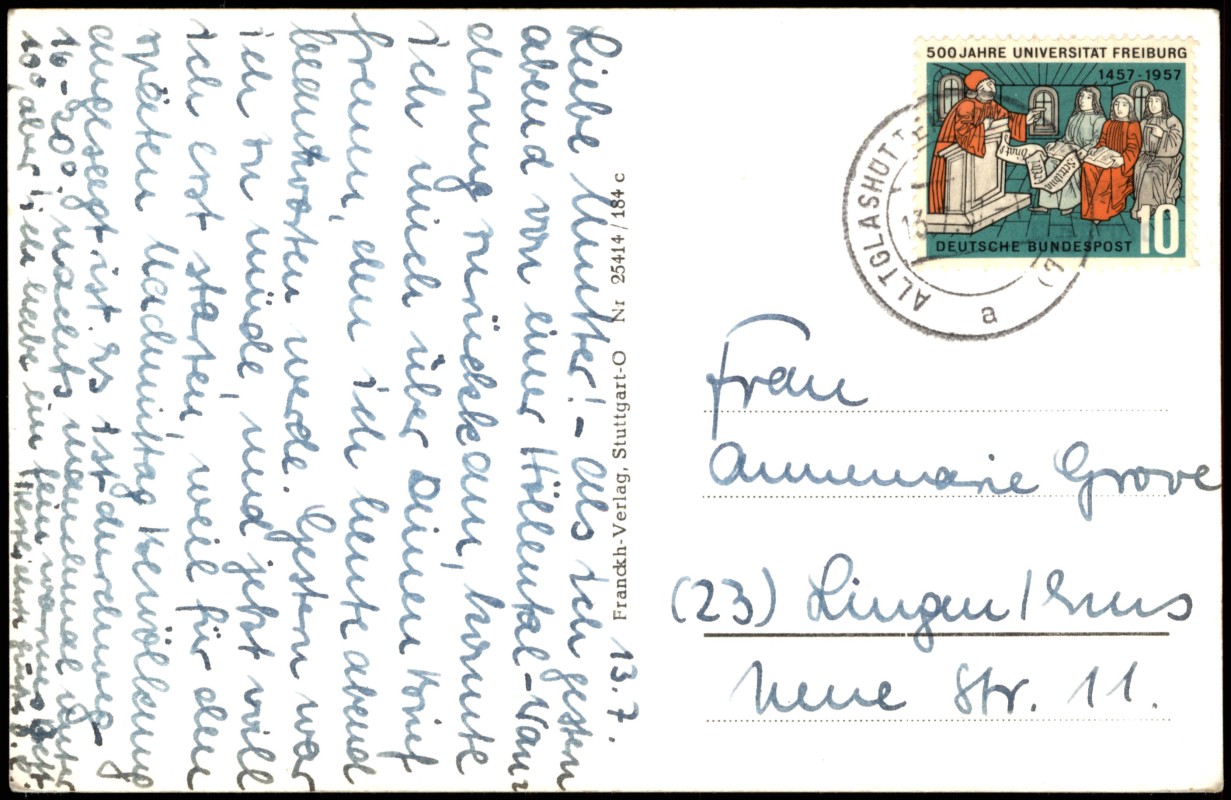 13.7.
Liebe Mutter! - Als ich gestern
abend von einer Höllental-Wan-
derung zurückkam, konnte
ich mich über Deinen Brief
freuen, den ich heute abend
beantworten werde. Gestern war
ich zu müde, und jetzt will
ich erst starten, weil für den
späten Nachmittag Bewölkung
angesagt ist. Es ist durchweg
16-20°, nachts manchmal unter
10°, aber ich habe ein fein warmes Bett
Herzlichst
Franckh-Verlag, Stuttgart-O Nr 25414/184 c
500 JAHRE UNIVERSITÄT FREIBURG
1457-1957
DEUTSCHE BUNDESPOST 10
ALTGLASHÜTT
13
a
Frau
Annemarie Grove
(23) Lingen/Ems
Neue Str. 11.